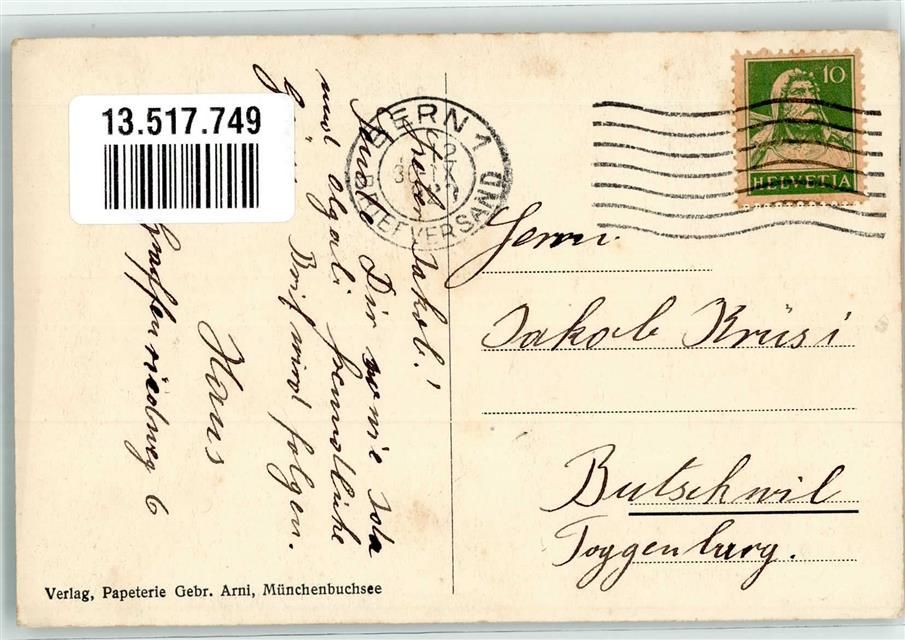 13.517.749
BERN 1
BRIEFVERSAND
10
HELVETIA
Jakob!
Sende Dir sowie Ida
und Olgali freundliche
Brief wird folgen.
Hans
6
Herrn
Jakob Krüsi
Butschwil
Toggenburg.
Verlag, Papeterie Gebr. Arni, Münchenbuchsee